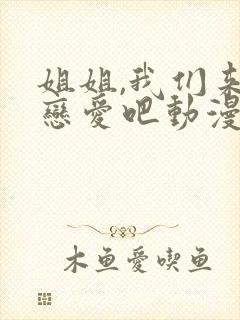 姐姐,我们来
戀愛吧動漫
木鱼愛喫鱼